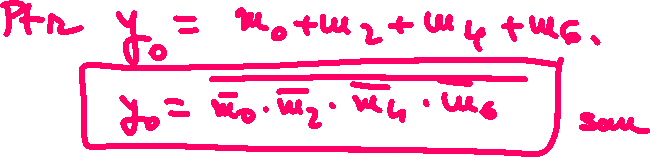 Ptr y₀ = m₀ + m₂ + m₄ + m₆.
y₀ = \overline{\overline{m}₀ · \overline{m}₂ · \overline{m}₄ · \overline{m}₆} sau